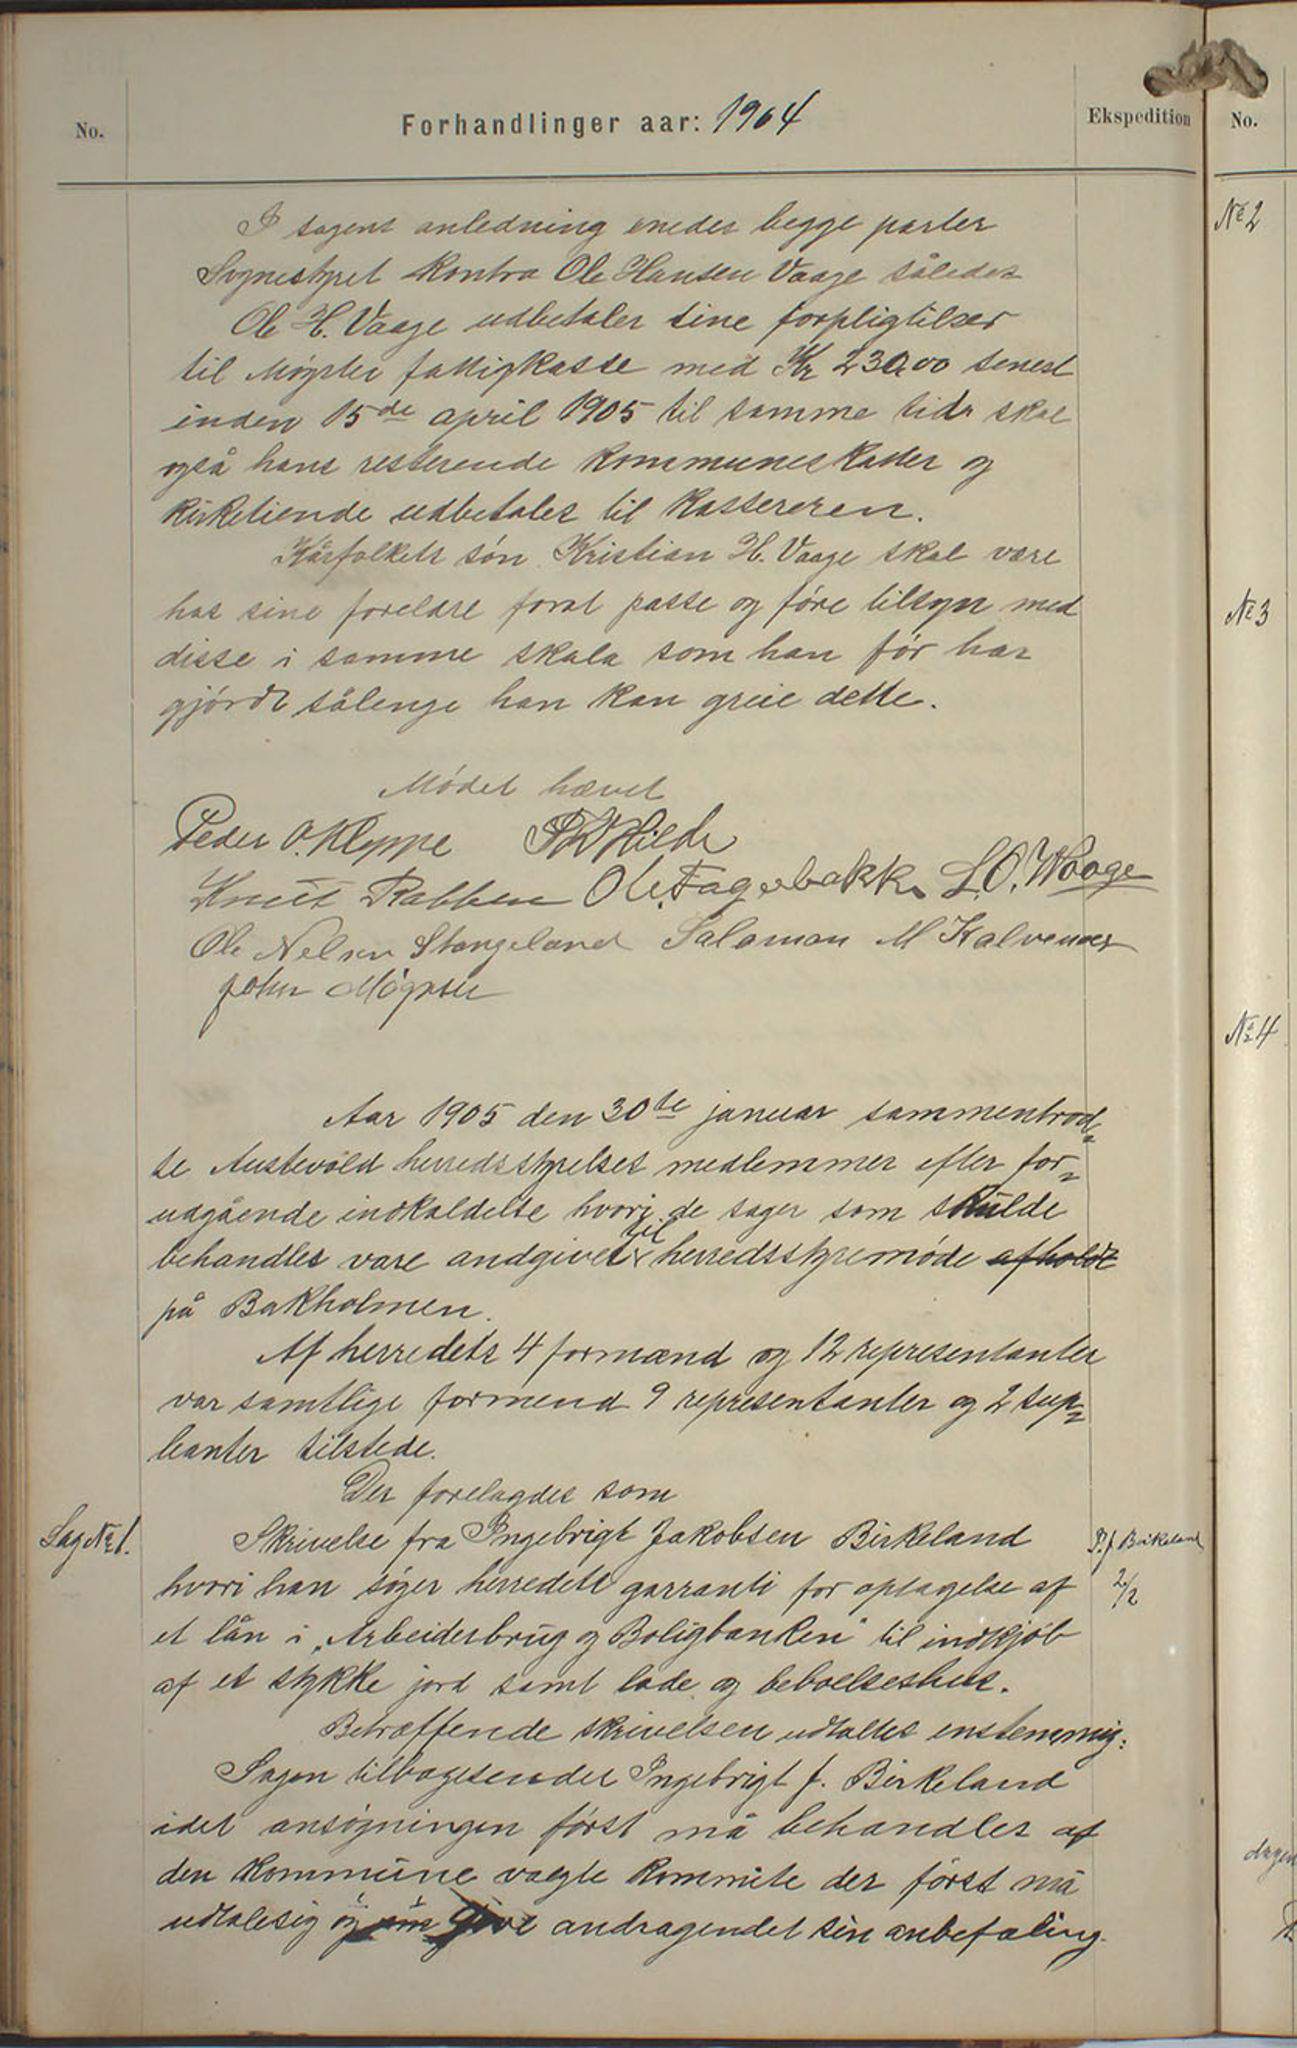 No.
Forhandlinger aar: 1904
Ekspedition
No.
I sagens anledning enedes begge parter
Sognestyret kontra Ole Hansen Vaage således
Ole H. Vaage udbetaler sine forpligtilser
til Møgster fattigkasse med Kr 230.00 senest
inden 15de april 1905 til samme tidr skal
også hans resterende kommuneskatter og
kirketiende udbetales til kassereren.
Kårfolkets søn Kristian H. Vaage skal være
hos sine forældre forat passe og føre tilsyn med
disse i samme skala som han før har
gjørdt sålenge han kan greie dette.
Mødet hævet
Peder O. Kleppe
Knut Rabben Ole Fagerbakke L. O. Waage
Ole Nelsen Stangeland Salamon M Kalvenæs
John Møgster
Aar 1905 den 30te januar sammentraad-
te Austevold herredsstyrelses medlemmer efter for-
udgående indkaldelse hvori de sager som skulde
behandles vare andgivet til herredsstyremøde afholdt
på Bakholmen.
Af herredets 4 formænd og 12 representanter
var samtlige formend 9 representanter og 2 sup-
leanter tilstede.
Der forelagdes som
Sag № 1.
Skrivelse fra Ingebrigt Jakobsen Birkeland
hvori han søger herredets garranti for optagelse af
et lån i „Arbeiderbrug og Boligbanken" til indkjøb
af et stykke jord samt lade og beboelseshus.
Betræffende skrivelsen udtaltes enstemmig:
Sagen tilbagesendes Ingebrigt J. Birkeland
idet ansøgningen først må behandles af
den kommune valgte kommite der først må
udtalesig og give andragendet sin anbefaling.
I. J. Birkeland
2/2
№ 2
№ 3
№ 4